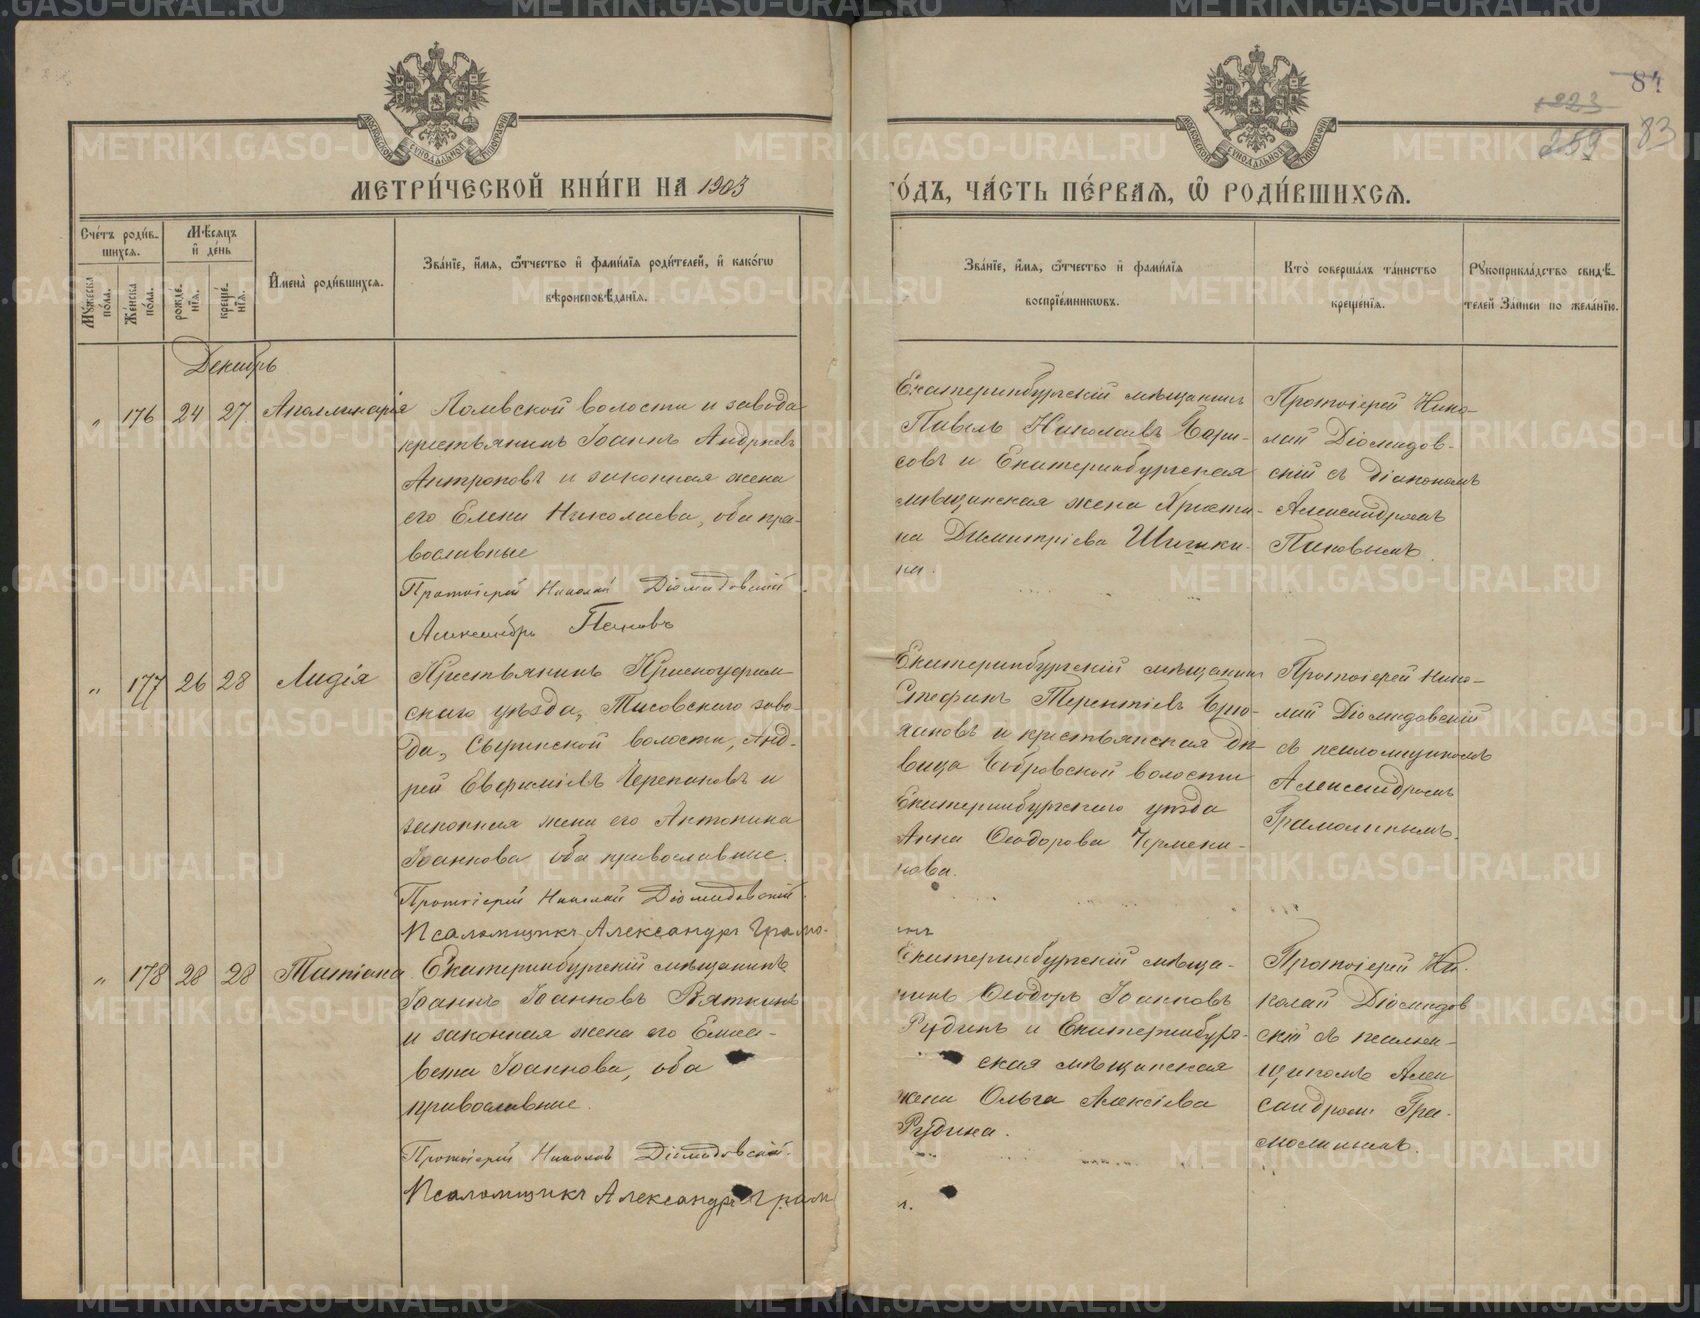 84
223
259 83
МОСКОВСКОЙ СѴНОДАЛЬНОЙ ТИПОГРАФІИ
МОСКОВСКОЙ СѴНОДАЛЬНОЙ ТИПОГРАФІИ
МЕТРИ́ЧЕСКОЙ КНИ́ГИ НА 1903
ГО́ДЪ, ЧА́СТЬ ПЕ́РВАЯ, Ѡ҆ РОДИ́ВШИХСЯ.
Сче́тъ роди́в-
шихся.
Мѣ́сяцъ
и҆ де́нь
Мꙋ́жеска
по́ла.
Же́нска
по́ла.
рожде́-
нїя.
креще́-
нїя.
И҆мена̀ роди́вшихся.
Зва́нїе, и҆́мя, ѻ҆́тчество и҆ фами́лїя роди́телей, и҆ како́гѡ
вѣроисповѣ́данїя.
Зва́нїе, и҆́мя, ѻ҆́тчество и҆ фами́лїя
воспрїе́мникѡвъ.
Кто̀ соверша́лъ та́инство
креще́нїя.
Рꙋкоприкла́дство свидѣ́-
телей За́писи по жела́нїю.
Декабрь
„ 176 24 27 Аполлинарія
Полевской волости и завода
крестьянинъ Іоаннъ Андреевъ
Антроповъ и законная жена
его Елена Николаева, оба пра-
вославные
Протоіерей Николай Діомидовскій.
Александръ Пановъ
Екатеринбургскій мѣщанинъ
Павелъ Николаевъ Бори-
совъ и Екатеринбургская
мѣщанская жена Христи-
на Димитріева Шишки-
на.
Протоіерей Нико-
лай Діомидов-
скій съ діакономъ
Александромъ
Пановымъ.
„ 177 26 28 Лидія
Крестьянинъ Красноуфим-
скаго уѣзда, Тисовскаго заво-
да, Сыринской волости, Анд-
рей Евфиміевъ Черепановъ и
законная жена его Антонина
Іоаннова оба православные.
Протоіерей Николай Діомидовскій.
Псаломщикъ Александръ Грамо-
Екатеринбургскій мѣщанинъ
Стефанъ Терентіевъ Брю-
хановъ и крестьянская дѣ-
вица Бобровской волости
Екатеринбургскаго уѣзда
Анна Ѳеодорова Чермени-
нова.
Протоіерей Нико-
лай Діомидовскій
съ псаломщикомъ
Александромъ
Грамолинымъ.
„ 178 28 28 Татіана
Екатеринбургскій мѣщанинъ
Іоаннъ Іоанновъ Вяткинъ
и законная жена его Елиса-
вета Іоаннова, оба
православные.
Протоіерей Николай Діомидовскій.
Псаломщикъ Александръ Грам
Екатеринбургскій мѣща-
нинъ Ѳеодоръ Іоанновъ
Рудинъ и Екатеринбург-
ская мѣщанская
жена Ольга Алексіева
Рудина.
Протоіерей Ни-
колай Діомидов
скій съ псалом-
щикомъ Алек
сандромъ Гра-
молинымъ.
METRIKI.GASO-URAL.RU